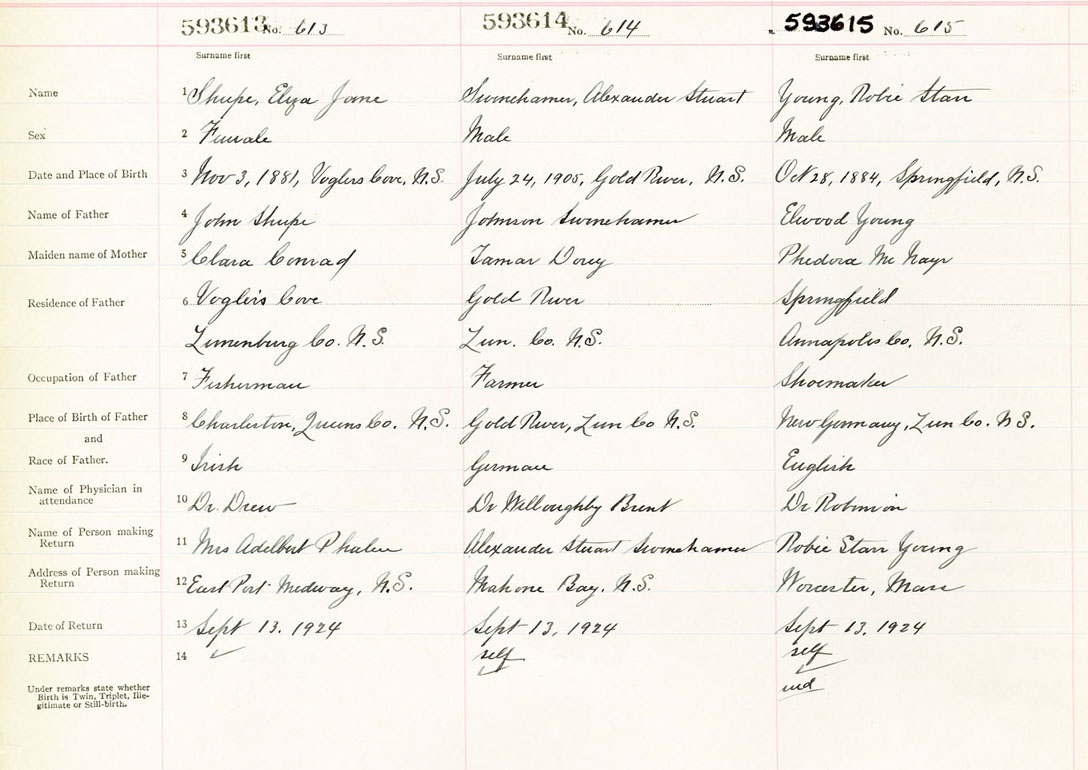 593613 No. 613 593614 No. 614 593615 No. 615
Surname first Surname first Surname first
Name 1 Shupe, Eliza Jane Swinehamer, Alexander Stuart Young, Robie Starr
Sex 2 Female Male Male
Date and Place of Birth 3 Nov 3, 1881, Voglers Cove, N.S. July 24, 1905, Gold River, N.S. Oct 28, 1884, Springfield, N.S.
Name of Father 4 John Shupe Johnson Swinehamer Elwood Young
Maiden name of Mother 5 Clara Conrad Tamar Dorey Phedora Mc Nayr
Residence of Father 6 Vogler's Cove Gold River Springfield
Lunenburg Co. N.S. Lun. Co. N.S. Annapolis Co, N.S.
Occupation of Father 7 Fisherman Farmer Shoemaker
Place of Birth of Father 8 Charleston, Queens Co. N.S. Gold River, Lun Co N.S. New Germany, Lun Co. N S.
and
Race of Father. 9 Irish German English
Name of Physician in
attendance 10 Dr. Drew Dr Willoughby Brent Dr Robinson
Name of Person making
Return 11 Mrs Adelbert Phalen Alexander Stuart Swinehamer Robie Starr Young
Address of Person making
Return 12 East Port Medway, N.S. Mahone Bay, N.S. Worcester, Mass
Date of Return 13 Sept 13. 1924 Sept 13, 1924 Sept 13, 1924
REMARKS 14 self self
Under remarks state whether
Birth is Twin, Triplet, Ille-
gitimate or Still-birth.